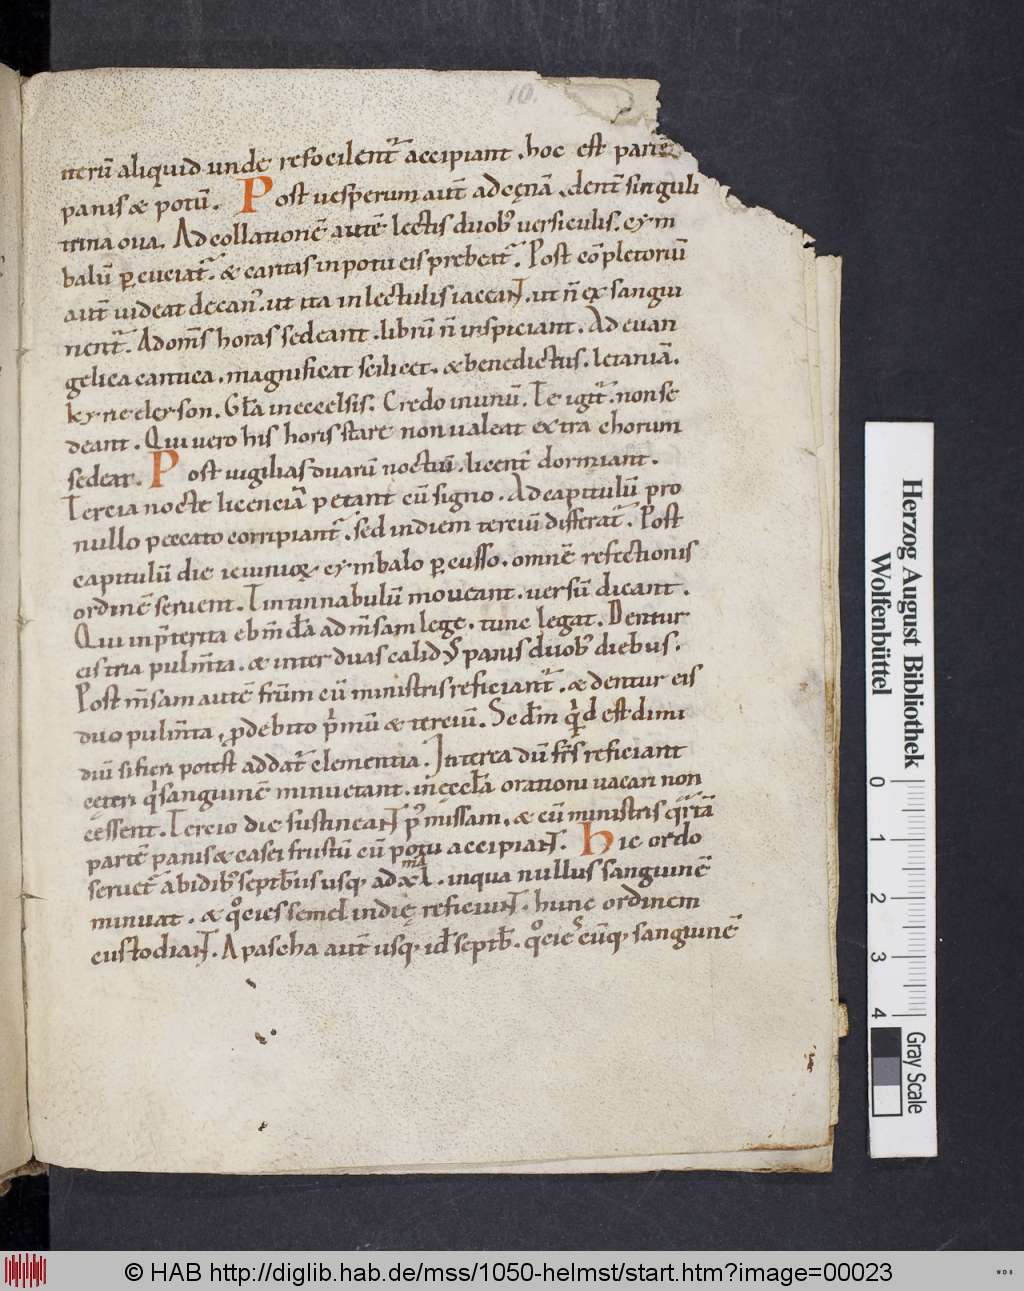 10.
iterū aliquid unde refocilentʳ accipiant. hoc est parū
panis & potū. Post uesperum aut̄ ad cęnā. dent̄ singuli
trina oua. Ad collationē autē lectis duobꝰ uersiculis. cym
balū ꝑcuciatʳ. & caritas in potu eis prebeatʳ. Post cōpletoriū
aut̄ uideat decanꝰ. ut ita in lectulis iaceant. ut n̄ exsangui
nentʳ. Ad om̄s horas sedeant. librū n̄ inspiciant. Ad euan
gelica cantica. magnificat scilicet. & benedictus. letaniā.
kyrieeleyson. Gl̄a in excelsis. Credo in unū. Te igitʳ. non se
deant. Qui uero his horis stare non ualeat extra chorum
sedeat. Post uigilias duarū noctiū. licent̄ dormiant.
Tercia nocte licenciā petant cū signo. Ad capitulū pro
nullo peccato corripiantʳ. sed in diem terciū differatʳ. Post
capitulū die ieiunioꝝ. cymbalo ꝑcusso. omnē refectionis
ordinē seruent. Tintinnabulū moueant. uersū dicant.
Qui in p̄terita ebm̄da ad m̄sam lege. tunc legat. Dentur
eis tria pulm̄ta. & inter duas calidꝰ panis duobꝰ diebus.
Post m̄sam autē fr̄um cū ministris reficiantʳ. & dentur eis
duo pulm̄ta, ꝓ debito p̄mū & terciū. Sed̄m qd̄ est dimi
diū si fieri potest addatʳ clementia. Interea dū fr̄s reficiant
ceteri q̄ sanguinē minuerant. in eccl̄a orationi uacari non
cessent. Tercio die sustineant pꝰ missam. & cū ministris qr̄tā
partē panis & casei frustū cū potu accipiant. Hic ordo
seruetʳ ab idibꝰ septb̄ris usqꝫ ad xl̄mā. in qua nullus sanguinē
minuat. & qͦcies semel in dię reficiunt. hunc ordinem
custodiant. A pascha aut̄ usqꝫ id̄ septb̄. qͦciescūqꝫ sanguinē
Herzog August Bibliothek
Wolfenbüttel
0 1 2 3 4
Gray Scale
© HAB http://diglib.hab.de/mss/1050-helmst/start.htm?image=00023